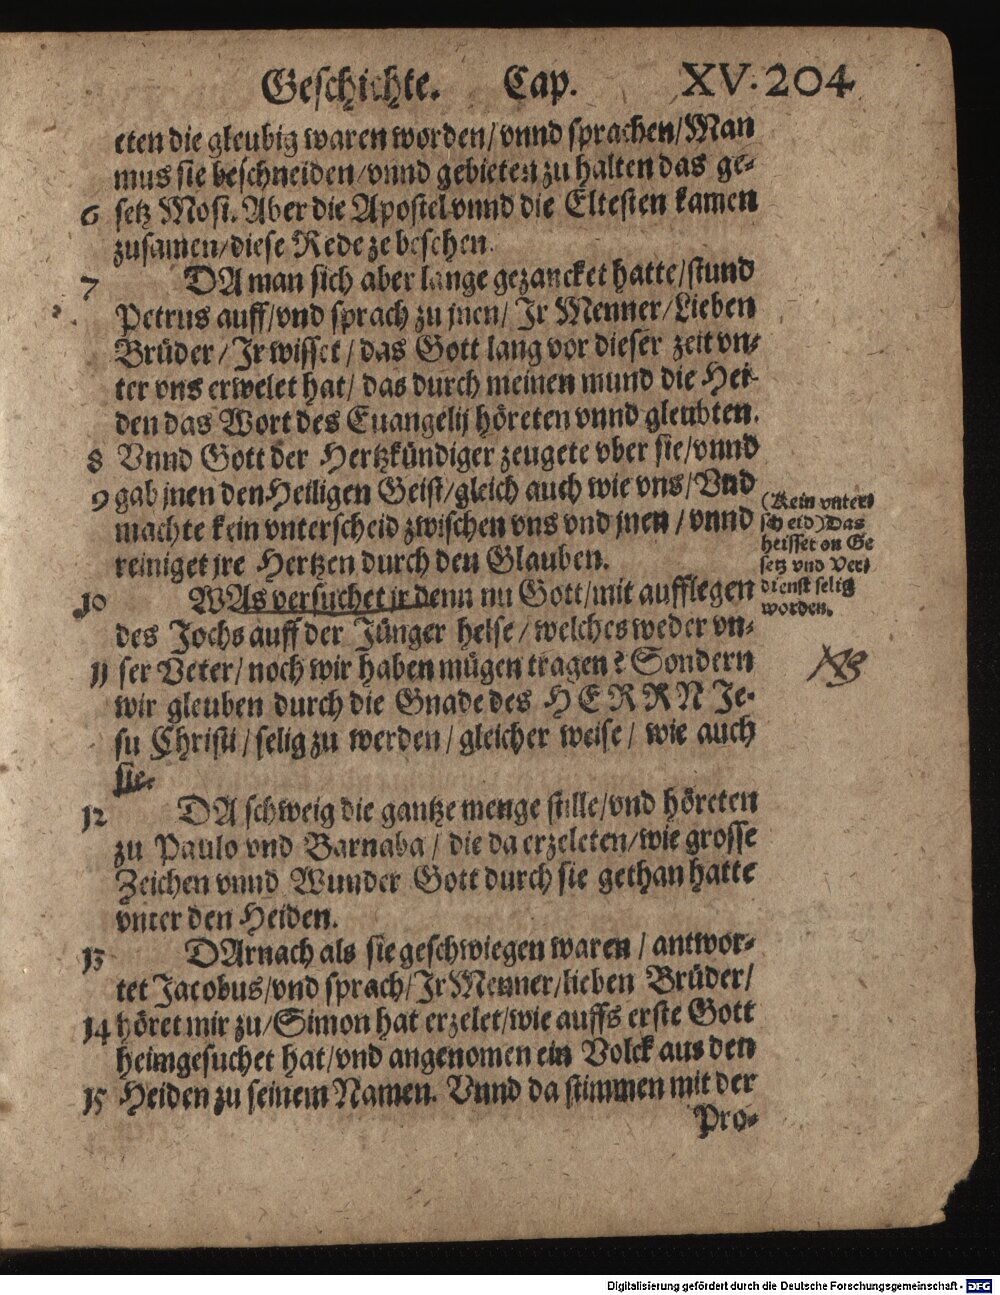 Geschichte. Cap. XV. 204
eten die gleubig waren worden/vnnd sprachen/Man
mus sie beschneiden/vnnd gebieten zu halten das ge-
6 setz Mosi. Aber die Apostel vnnd die Eltesten kamen
zusamen/diese Rede ze besehen.
7 DA man sich aber lange gezancket hatte/stund
Petrus auff/vnd sprach zu jnen/ Jr Menner/Lieben
Brüder/Jr wisset/das Gott lang vor dieser zeit vn-
ter vns erwelet hat/ das durch meinen mund die Hei-
den das Wort des Euangelij höreten vnnd gleubten.
8 Vnnd Gott der Hertzkündiger zeugete vber sie/vnnd
9 gab jnen den Heiligen Geist/gleich auch wie vns/Vnd
machte kein vnterscheid zwischen vns vnd jnen/vnnd
reiniget jre Hertzen durch den Glauben.
(Kein vnter-
scheid) Das
heisset on Ge
setz vnd Ver-
dienst selig
worden.
10 WAs versuchet jr denn nu Gott/mit aufflegen
des Jochs auff der Jünger helse/welches weder vn-
11 ser Veter/noch wir haben mügen tragen? Sondern
wir gleuben durch die Gnade des HERRN Je-
su Christi/selig zu werden/gleicher weise/ wie auch
sie.
12 DA schweig die gantze menge stille/vnd höreten
zu Paulo vnd Barnaba/ die da erzeleten/wie grosse
Zeichen vnnd Wunder Gott durch sie gethan hatte
vnter den Heiden.
13 DArnach als sie geschwiegen waren/antwor-
tet Jacobus/vnd sprach/Jr Menner/lieben Brüder/
14 höret mir zu/Simon hat erzelet/wie auffs erste Gott
heimgesuchet hat/vnd angenomen ein Volck aus den
15 Heiden zu seinem Namen. Vnnd da stimmen mit der
Pro-
Digitalisierung gefördert durch die Deutsche Forschungsgemeinschaft - DFG